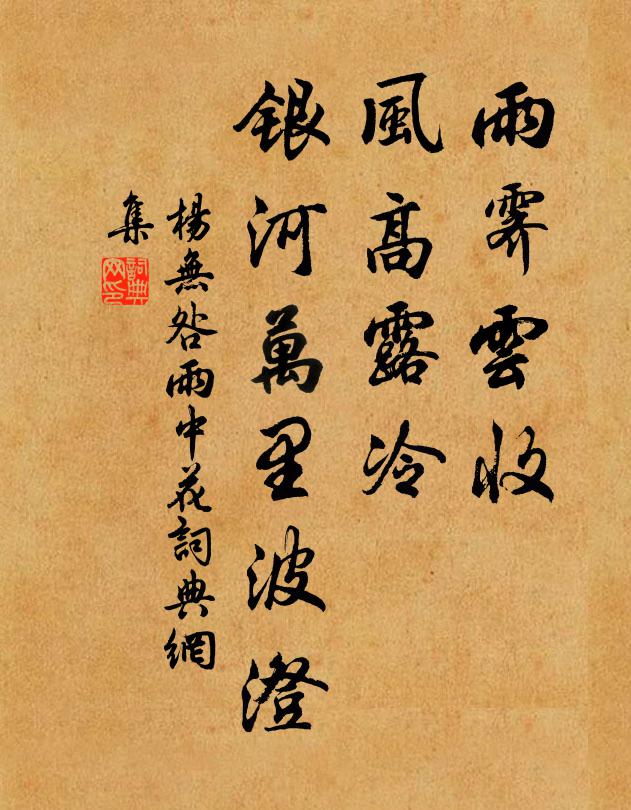 雨霽雲收
風高露冷
銀河萬里波澄
楊無咎雨中花詞典網
集
詞典网印